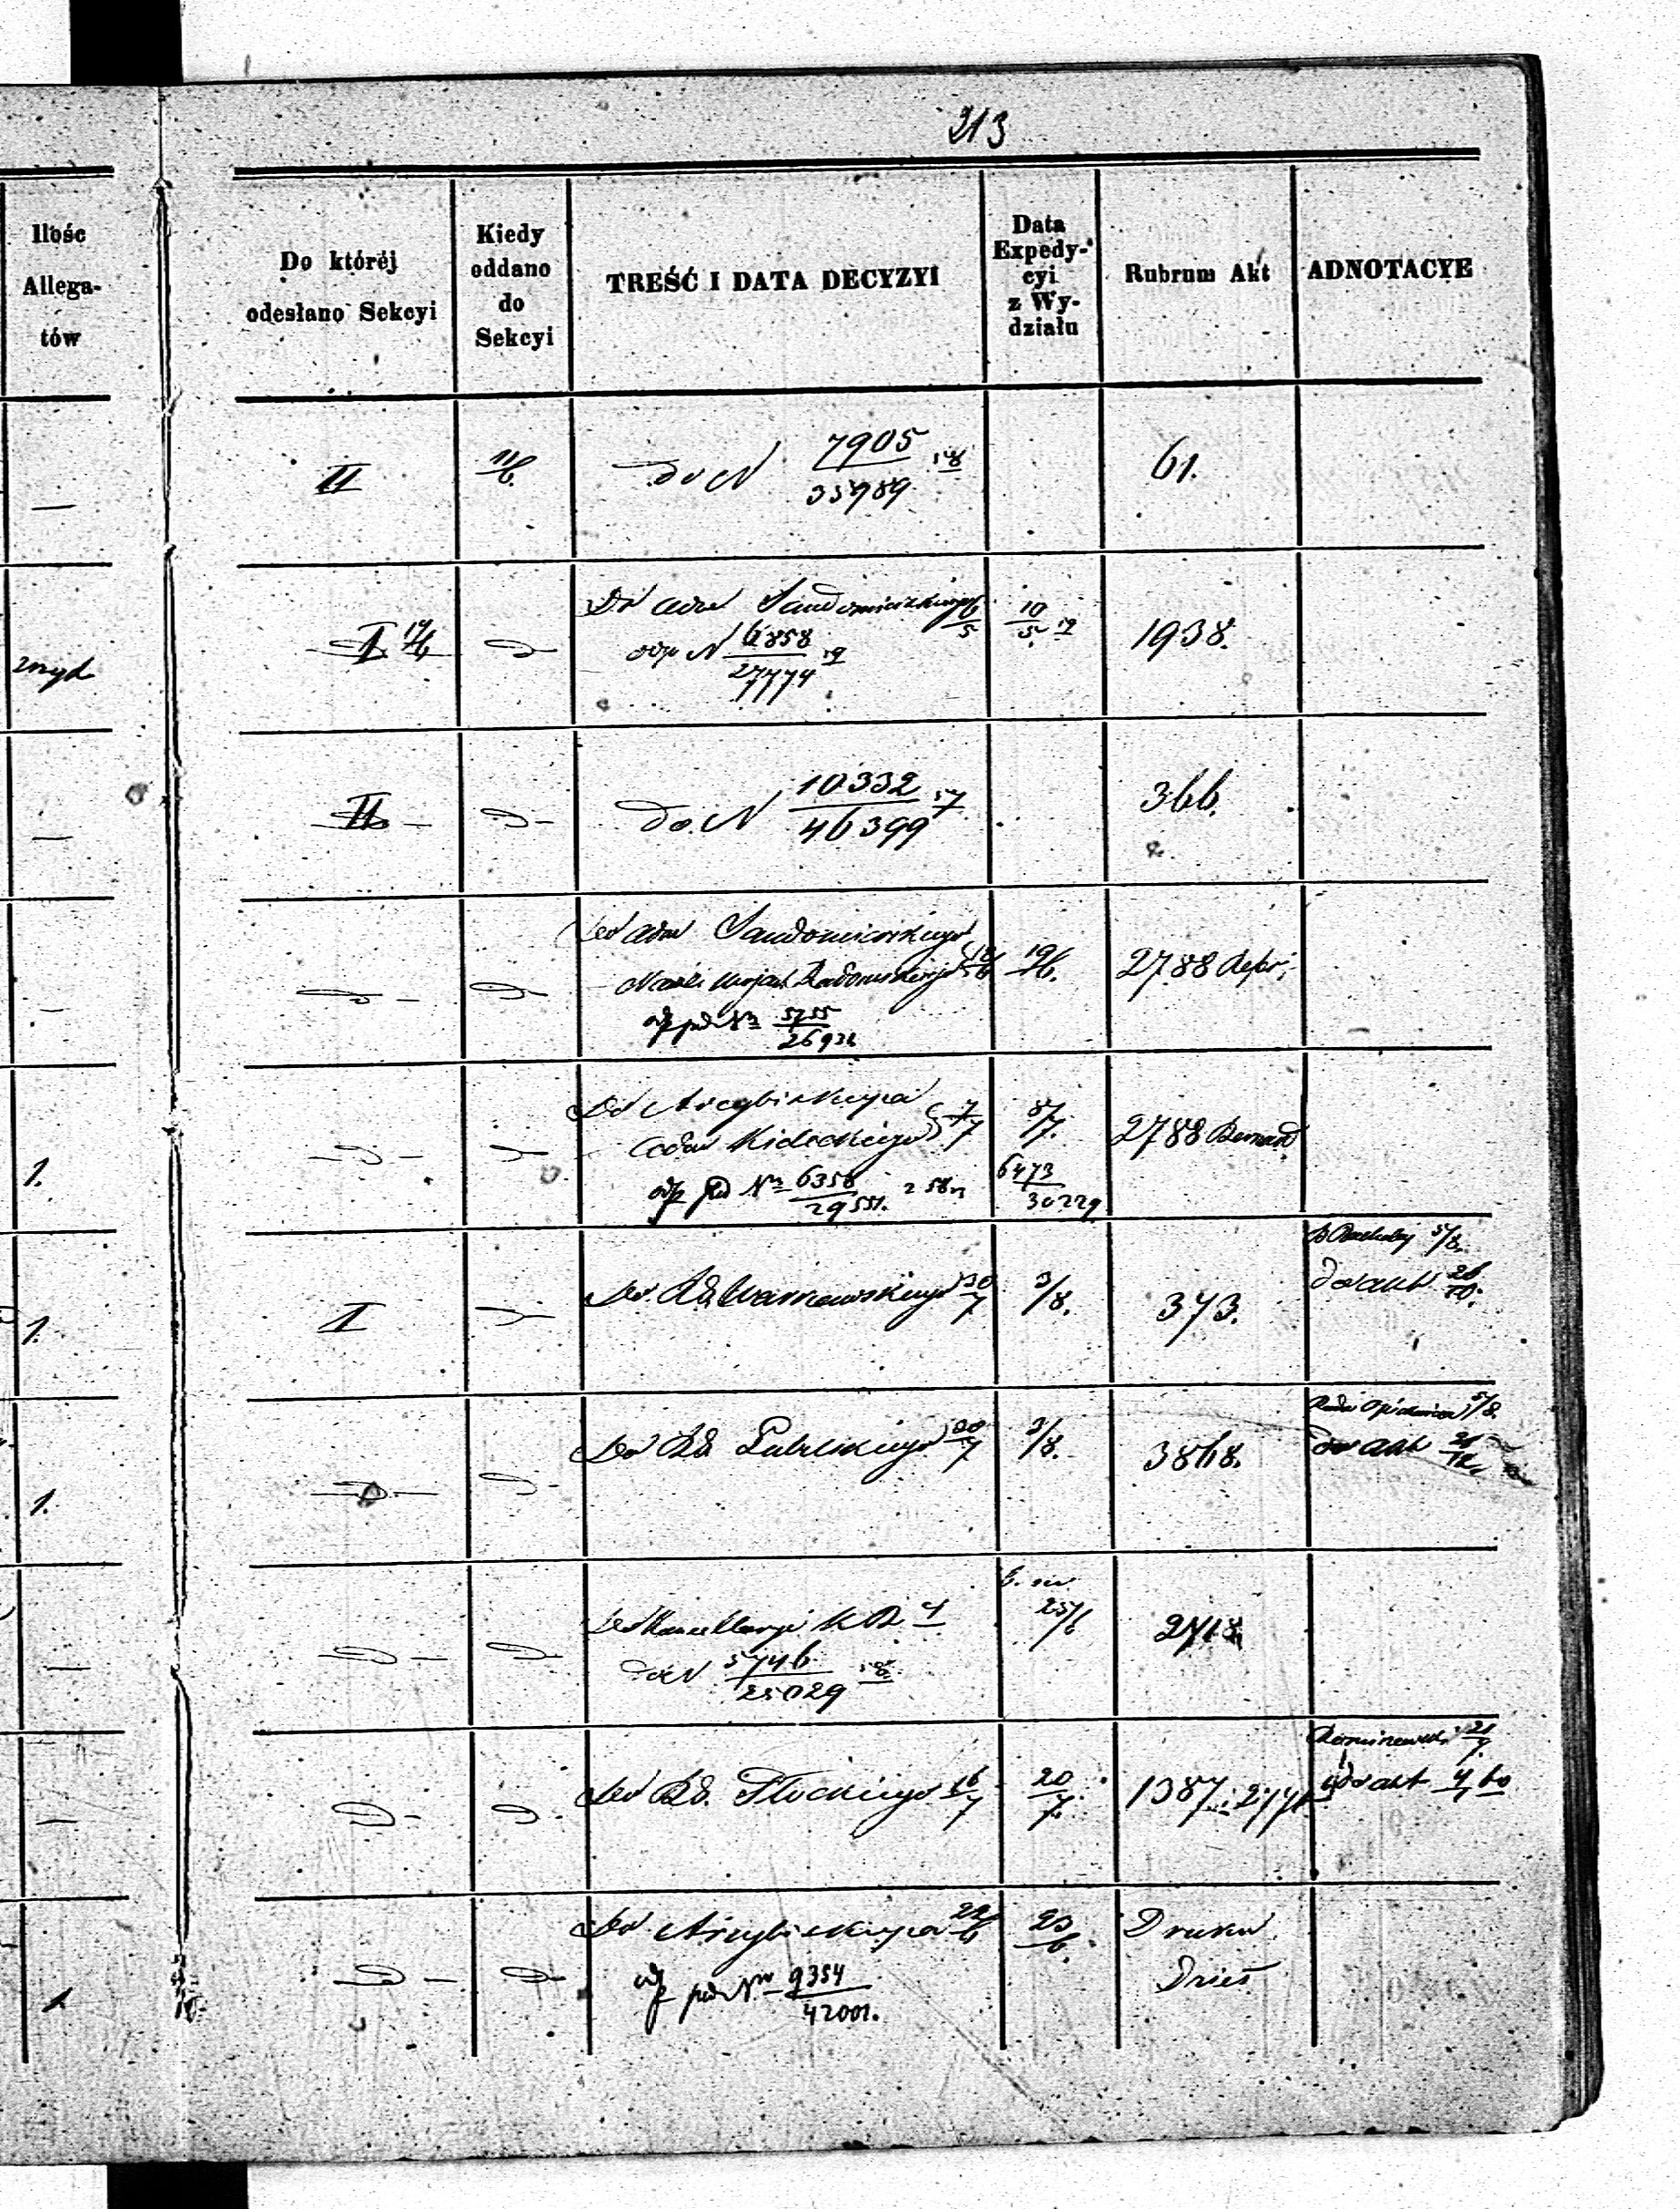 213
Ilość
Allega-
tów
Do któréj
odesłano Sekcyi
Kiedy
oddano
do
Sekcyi
TREŚĆ I DATA DECYZYI
Data
Expedy-
cyi
z Wy-
działu
Rubrum Akt
ADNOTACYE
—
II
11/6
do N 7905/35989 58
61.
II 14/6
Do Adm Sandomierskiego 6/5
odp N 6858/27774 59
10/5 59
1938.
—
II
do N 10332/46399 57
366.
—
Do Adm Sandomierskiego
Radomskiego 18/6
odp pod Nr 5755/26932
19/6.
2788
1.
Do Arcybiskupa
Adm Kieleckiego 7/7
odp pod Nr 6358/29551. z 58 r
8/7.
6473/30229
2788 Bernard
1.
I
Do Rd. Warszawskiego 30/7
3/8.
373.
5/8.
do akt 26/10.
1.
Do Rd. Lubelskiego 30/7
3/8.
3868.
Rada Opiekuńcza 5/8.
do akt
—
Do Kancellaryi K R
do N 5746/25029 58
25/6
2718
—
Do Rd. Płockiego 16/7
20/7.
1387
21/7.
do akt 4/1 60
1
Do Arcybiskupa 22/6
odp pod Nr 9354/42001.
23/6.
Druków
Dzieł